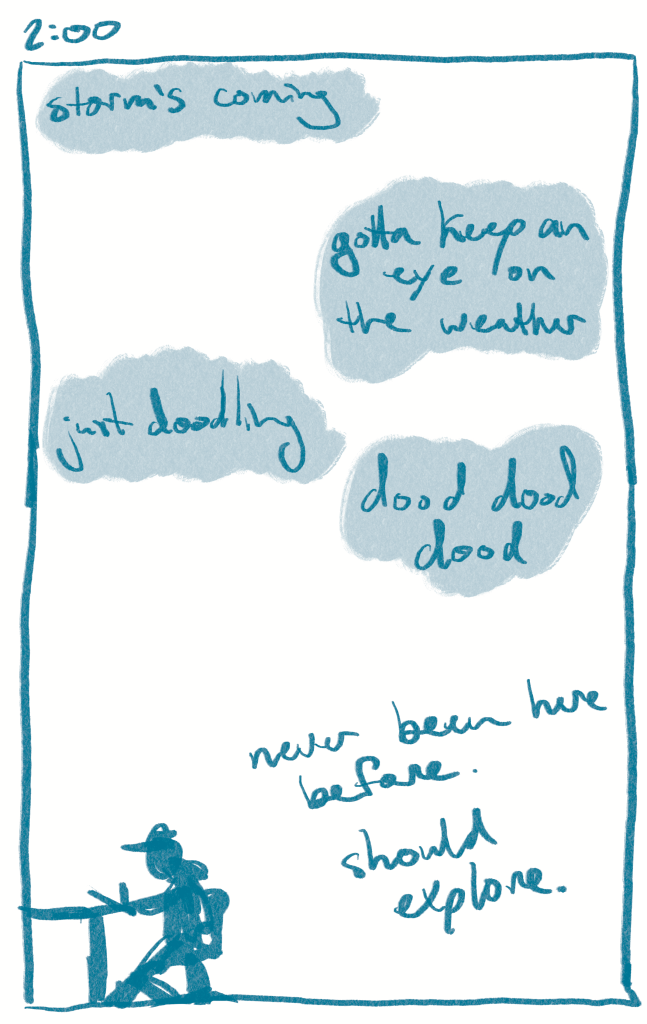 2:00
storm's coming
gotta keep an
eye on
the weather
just doodling
dood dood
dood
never been here
before.
should
explore.